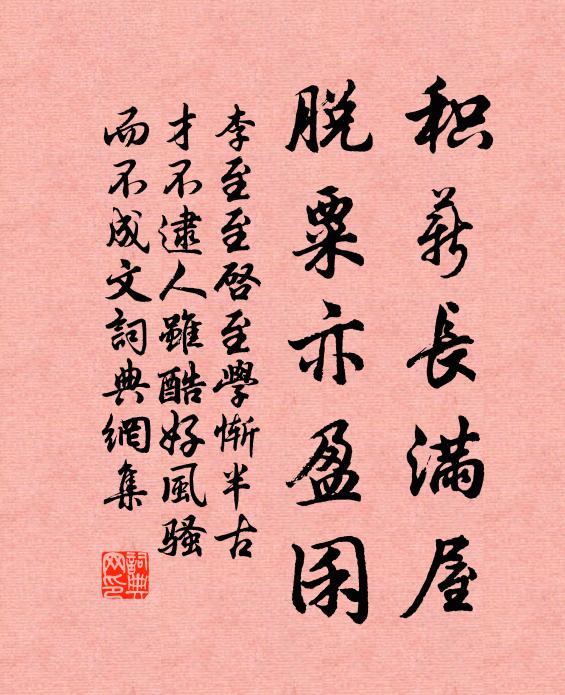 积薪長滿屋
脱粟亦盈囷
李至至啓至學惭半古
才不逮人雖酷好風骚
而不成文詞典網集
詞典网印